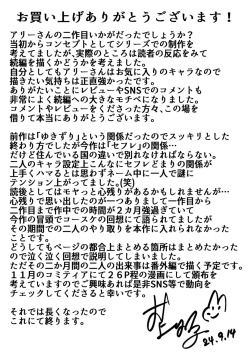 お買い上げありがとうございます！
アリーさんの二作目いかがだったでしょうか？
当初からコンセプトとしてシリーズでの制作を
考えてましたが、実際のところは読者の反応をみて
続編を描くかどうかを考えました。
自分としてもアリーさんはお気に入りのキャラなので
描きたい気持ちは正直強かったです。
ありがたいことにレビューやSNSでのコメントも
非常によく続編への大きなモチベになりました。
コメントやレビューをくださった方々、この場を
借りて本当にありがとうございます。
前作は「ゆきずり」という関係だったのでスッキリとした
終わり方でしたが今作は「セフレ」の関係…
だけど住んでいる国の違いで別れなければならない。
二人のキャラ設定上こんなにセフレどまりの関係が
上手くハマるとは思わずネーム中に一人で謎に
テンション上がってました。(笑)
読後としてはちょっと心残りがあるかもしれませんが…
心残りで思い出したのが一つありまして一作目から
二作目まで作中での時間が２カ月強過ぎていて
今作の冒頭でコースケの回想にて語られてましたが
その期間での二人のやり取りを本作に入れられなかった
ことです。
どうしてもページの都合上まとめる箇所はまとめたかった
ので泣く泣く回想で説明してしまいました。
ただその二か月間の二人の出来事は番外編で描く予定です。
１１月のコミティアにて２６Ｐ程の漫画にして頒布を
考えていますのでご興味あれば是非SNS等で動向を
チェックしてくださると幸いです。
それでは長くなったので
これにて終わります。
24.9.14